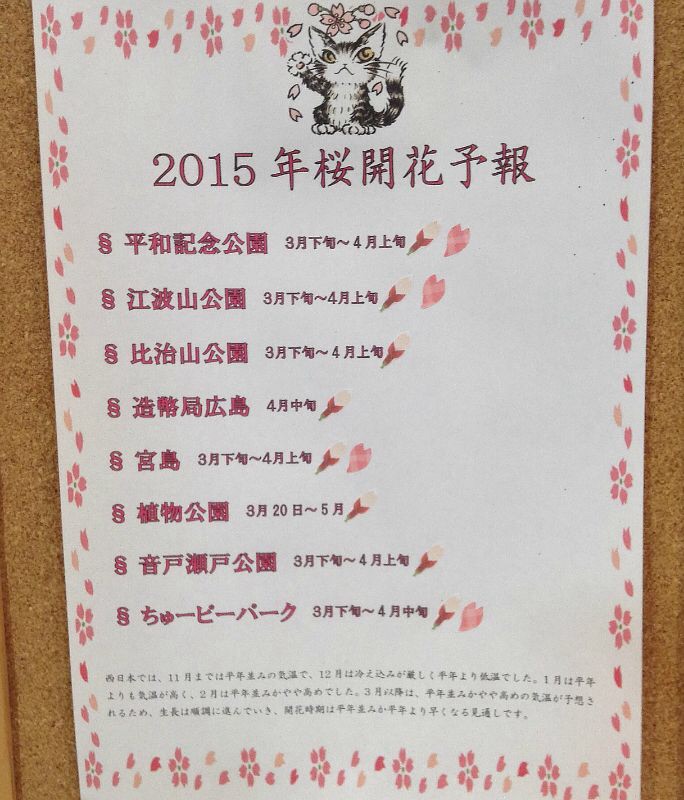 2015年桜開花予報
§ 平和記念公園 3月下旬～4月上旬
§ 江波山公園 3月下旬～4月上旬
§ 比治山公園 3月下旬～4月上旬
§ 造幣局広島 4月中旬
§ 宮島 3月下旬～4月上旬
§ 植物公園 3月20日～5月
§ 音戸瀬戸公園 3月下旬～4月上旬
§ ちゅーピーパーク 3月下旬～4月中旬
西日本では、11月までは平年並みの気温で、12月は冷え込みが厳しく平年より低温でした。1月は平年
よりも気温が高く、2月は平年並みかやや高めでした。3月以降は、平年並みかやや高めの気温が予想さ
れるため、生長は順調に進んでいき、開花時期は平年並みか平年より早くなる見通しです。